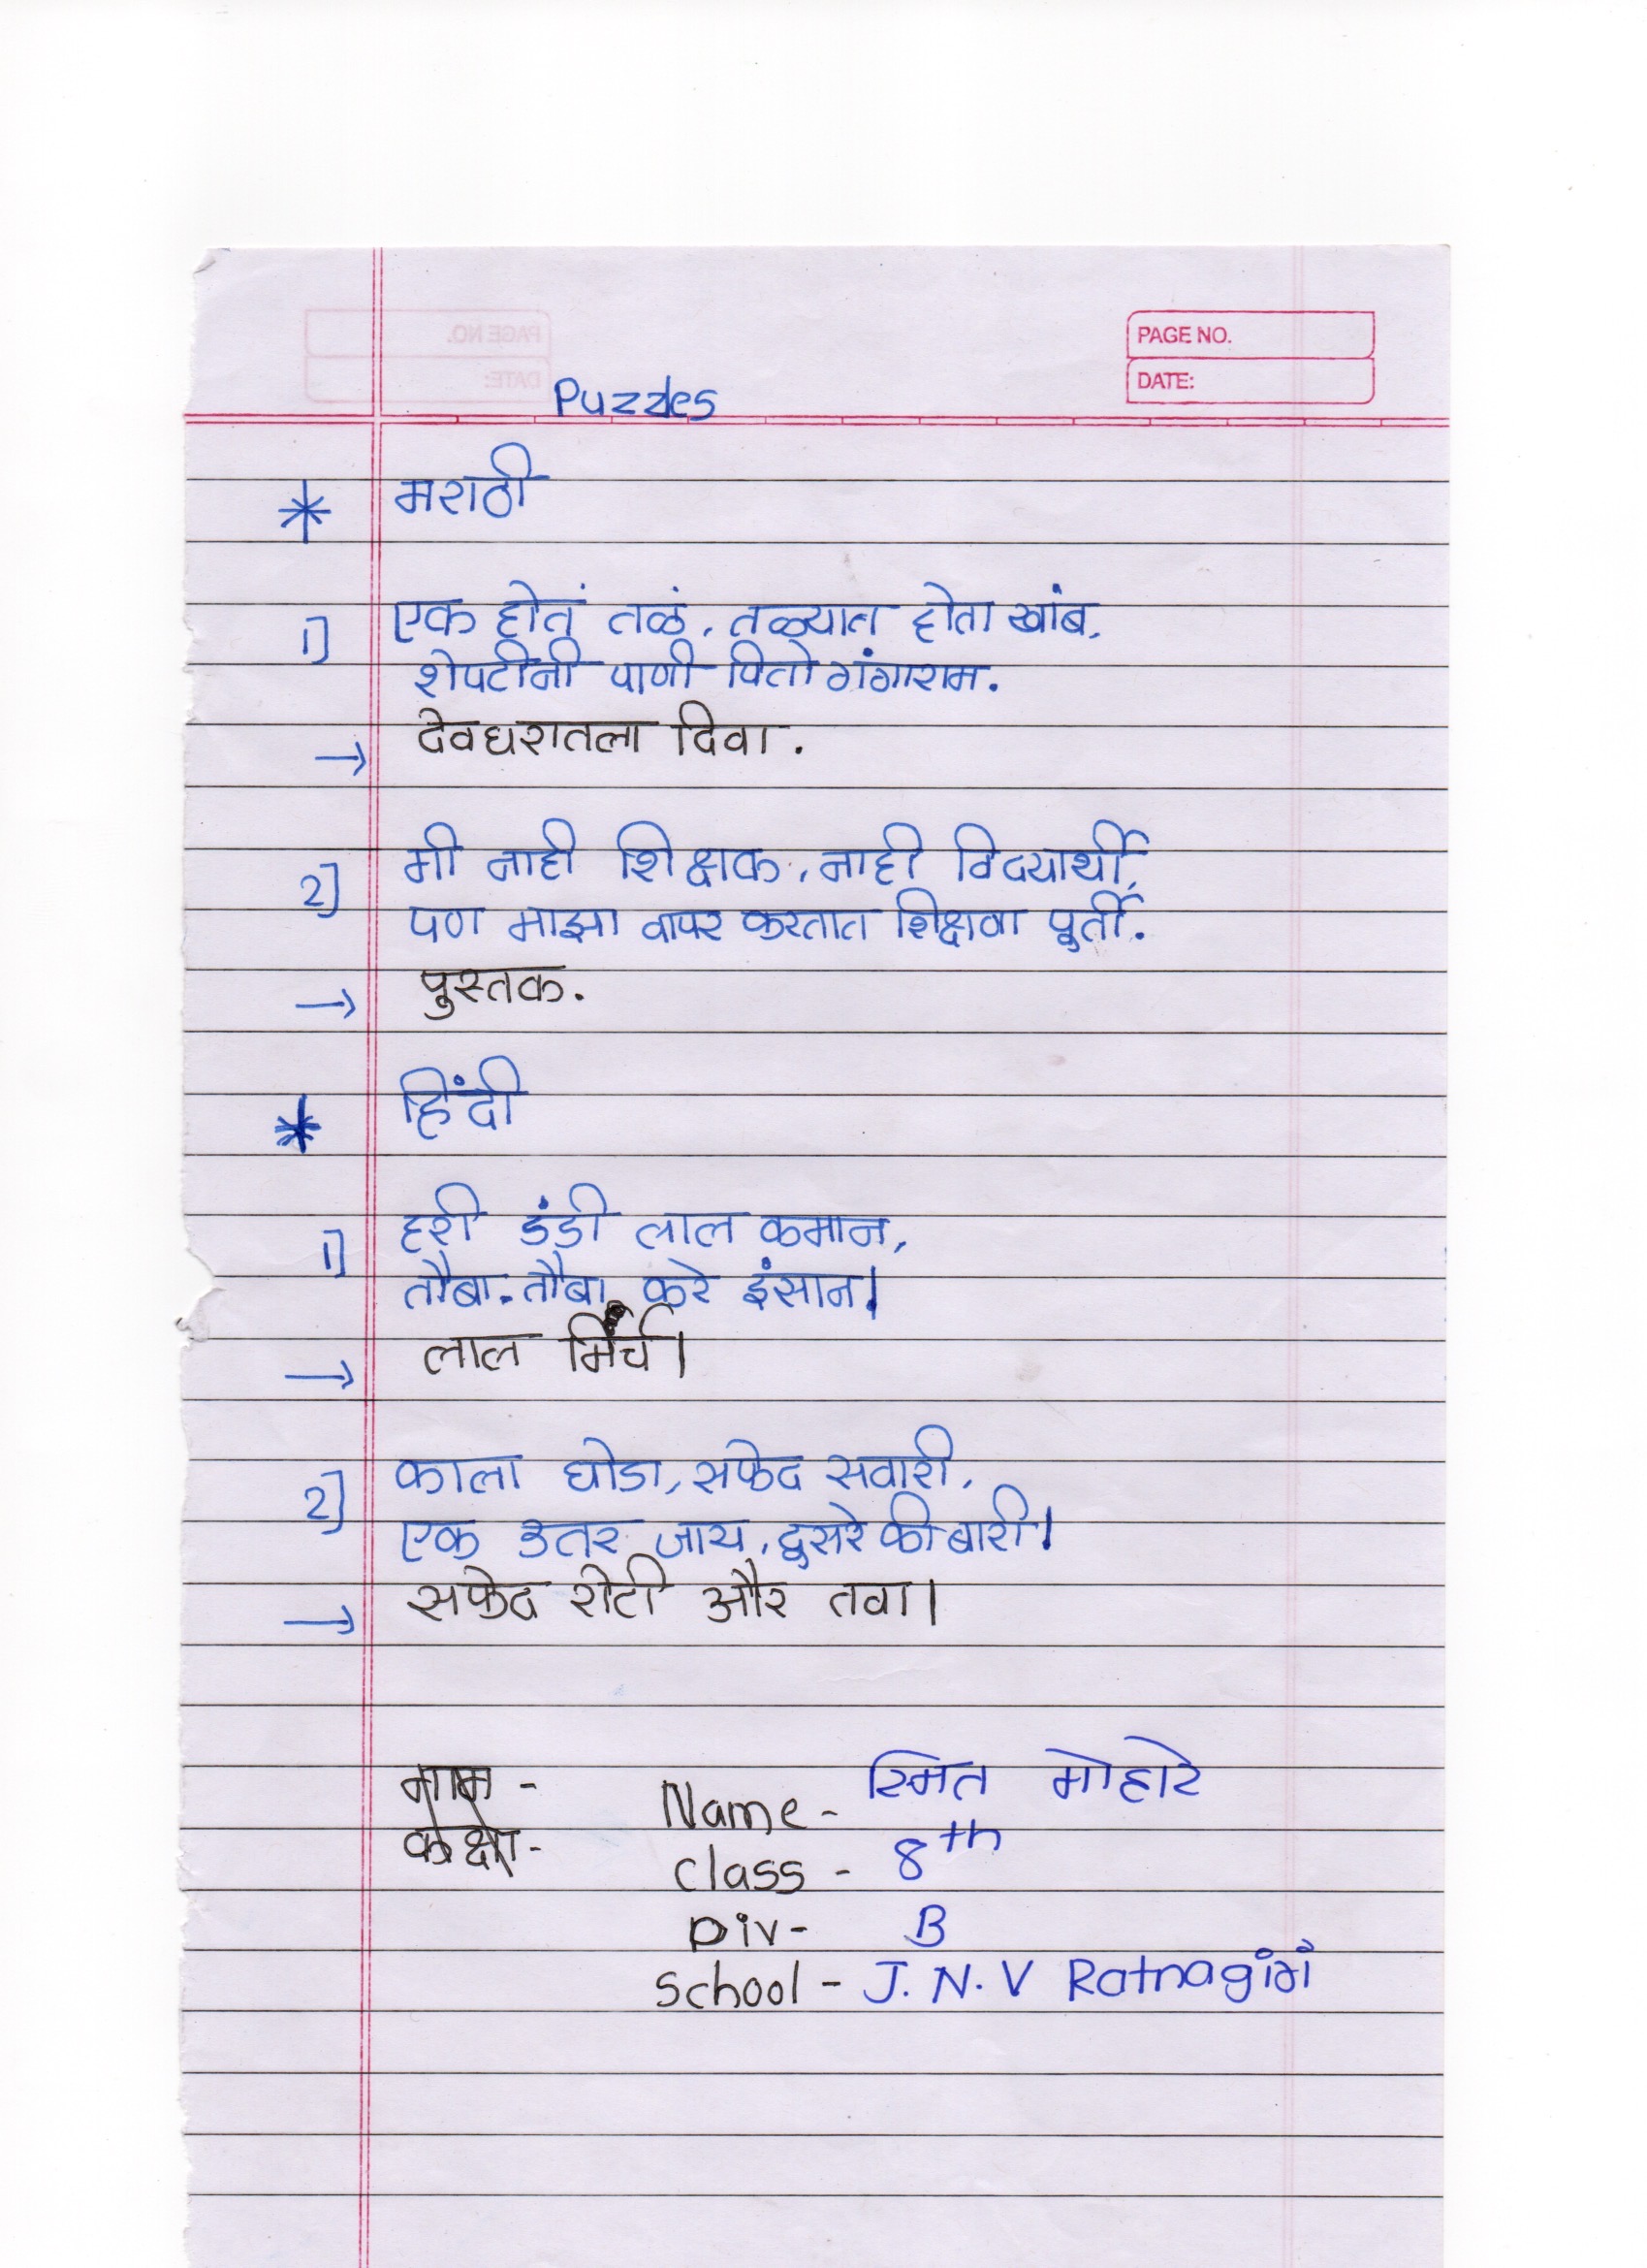 PAGE NO.
DATE:
Puzzles
* मराठी
1] एक होतं तळं, तळ्यात होता खांब,
शेपटीनी पाणी पितो गंगाराम.
→ देवघरातला दिवा.
2] मी नाही शिक्षक, नाही विद्यार्थी,
पण माझा वापर करतात शिक्षवा पूर्ती.
→ पुस्तक.
* हिंदी
1] हरी डंडी लाल कमान,
तौबा-तौबा करे इंसान।
→ लाल मिर्च।
2] काला घोडा, सफेद सवारी,
एक उतर जाय, दुसरे की बारी।
→ सफेद रोटी और तवा।
नाम -
कक्षा -
Name - स्मित मोहारे
class - 8th
Div - B
school - J. N. V Ratnagiri